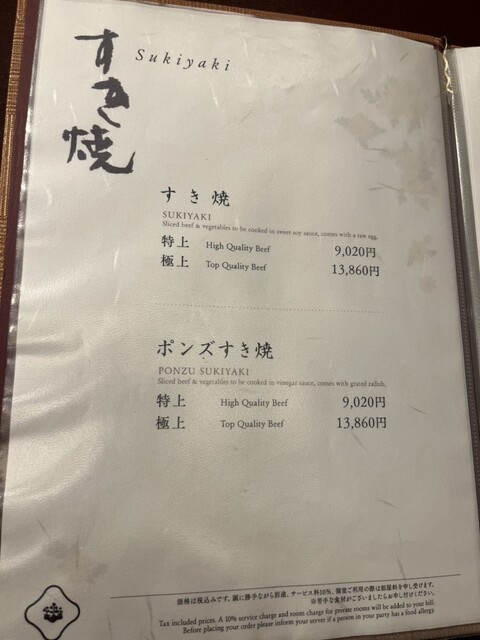 すき焼
Sukiyaki
すき焼
SUKIYAKI
Sliced beef & vegetables to be cooked in sweet soy sauce, comes with a raw egg.
特上 High Quality Beef 9,020円
極上 Top Quality Beef 13,860円
ポンズすき焼
PONZU SUKIYAKI
Sliced beef & vegetables to be cooked in vinegar sauce, comes with grated radish.
特上 High Quality Beef 9,020円
極上 Top Quality Beef 13,860円
価格は税込みです。誠に勝手ながら別途、サービス料10%、個室ご利用の際は部屋料を申し受けます。
※苦手な食材がございましたらお申し付けください。
Tax included prices. A 10% service charge and room charge for private rooms will be added to your bill.
Before placing your order please inform your server if a person in your party has a food allergy.